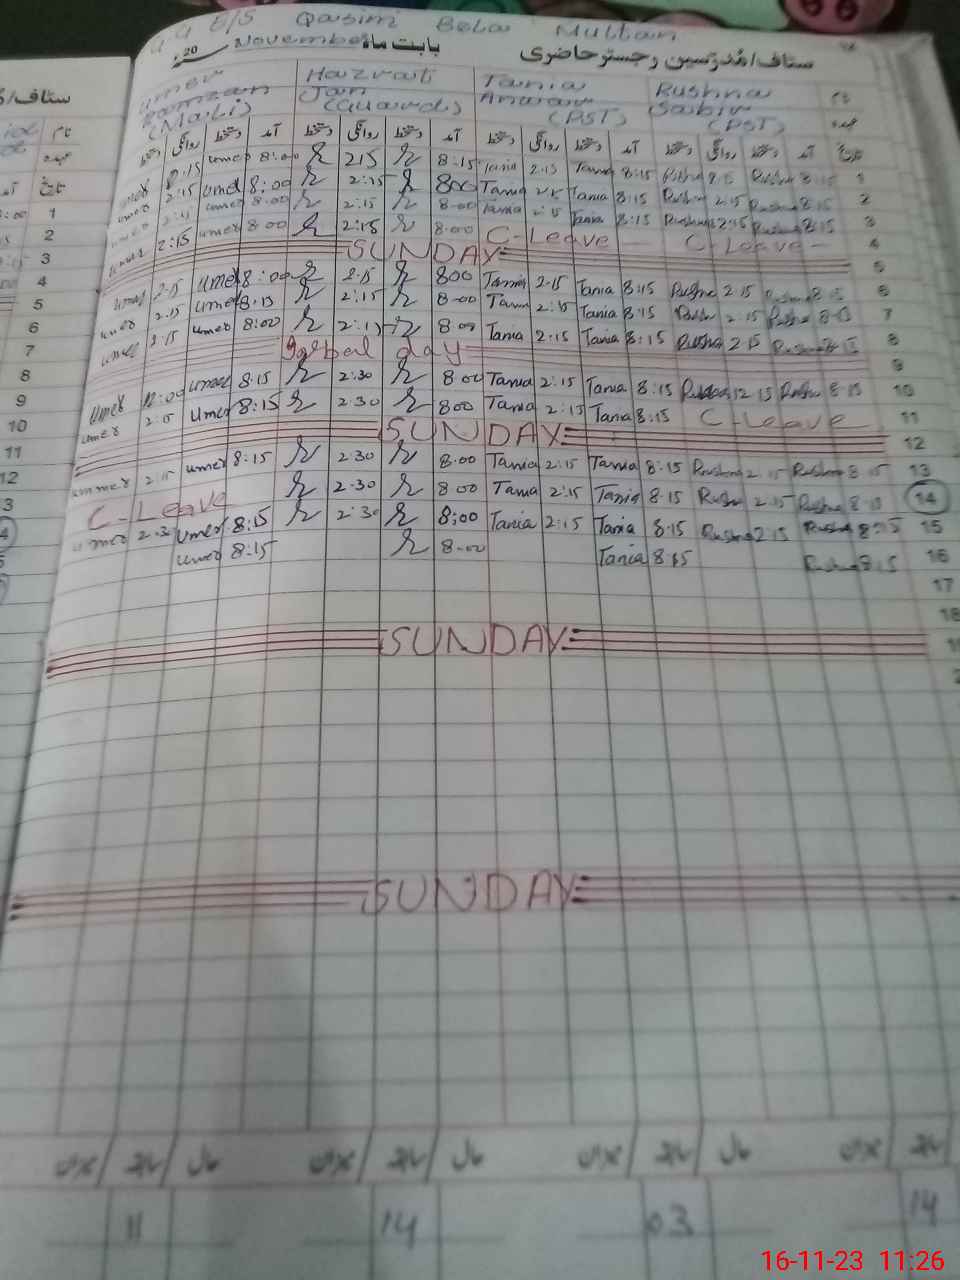 G.G E/S Qasim Bela Multan
ستاف/مُدرّسین رجسٹر حاضری بابت ماہ November 20
نام Rushna Sabir Tania Anwar Hazrat Jan Umer Ramzan
عہدہ (PST) (PST) (Guard) (Mali)
تاریخ آمد دستخط روانگی دستخط آمد دستخط روانگی دستخط آمد دستخط روانگی دستخط آمد دستخط روانگی دستخط
1 8:15 Rushna 2:15 Rushna 8:15 Tania 2:15 Tania 8:15 2:15 8:00 umer 2:15 umer
2 8:15 Rushna 2:15 Rushna 8:15 Tania 2:15 Tania 800 2:15 8:00 umer 2:15 umer
3 8:15 Rushna 2:15 Rushna 8:15 Tania 2:15 Tania 8:00 2:15 8:00 umer 2:15 umer
4 C-Leave C-Leave 8:00 2:15 8:00 umer 2:15 umer
5 SUNDAY
6 8:15 Rushna 2:15 Rushna 8:15 Tania 2:15 Tania 800 2:15 8:00 umer 2:15 umer
7 8:15 Rushna 2:15 Rushna 8:15 Tania 2:15 Tania 8:00 2:15 8:15 umer 2:15 umer
8 8:15 Rushna 2:15 Rushna 8:15 Tania 2:15 Tania 8:00 2:15 8:00 umer 2:15 umer
9 Iqbal day
10 8:15 Rushna 12:15 Rushna 8:15 Tania 2:15 Tania 8:00 2:30 8:15 umer 12:00 umer
11 C-Leave 8:15 Tania 2:15 Tania 800 2:30 8:15 umer 2:15 umer
12 SUNDAY
13 8:15 Rushna 2:15 Rushna 8:15 Tania 2:15 Tania 8:00 2:30 8:15 umer 2:15 ummer
14 8:15 Rushna 2:15 Rushna 8:15 Tania 2:15 Tania 8:00 2:30 C-Leave
15 8:15 Rushna 2:15 Rushna 8:15 Tania 2:15 Tania 8:00 2:30 8:15 umer 2:30 umer
16 8:15 Rushna 8:15 Tania 8:00 8:15 umer
17
18
SUNDAY
SUNDAY
سابقہ میزان حال سابقہ میزان حال سابقہ میزان حال سابقہ میزان
14 03 14 11
ستاف/
نام
عہدہ
تاریخ
1
2
3
4
5
6
7
8
9
10
11
12
16-11-23 11:26